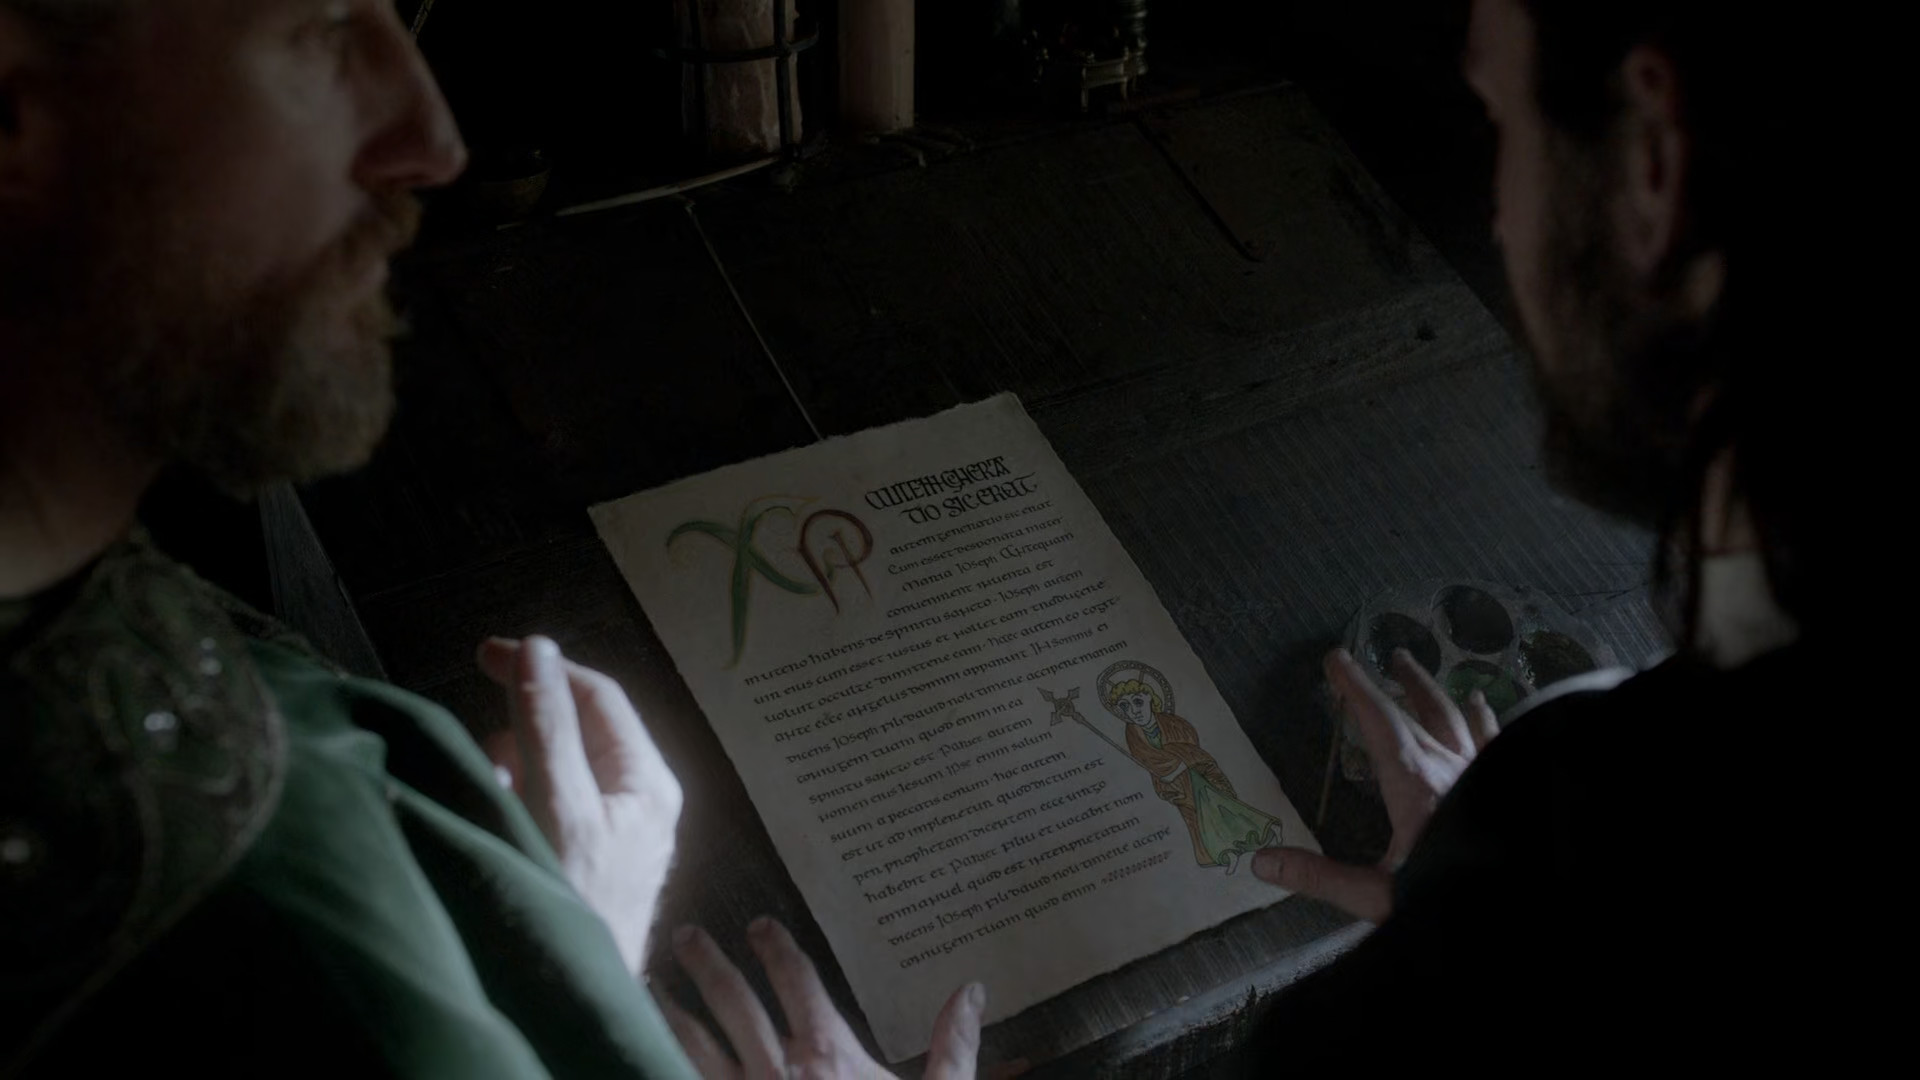 XPI
AUTEM GENERA
TIO SIC ERAT
autem generatio sic erat
Cum esset desponsata mater
Maria Joseph Antequam
convenirent inventa est
in utero habens de Spiritu sancto · Joseph autem
vir eius cum esset iustus et nollet eam traducere
voluit occulte dimittere eam · haec autem eo cogit-
ante ecce angelus domini apparuit in somnis ei
dicens Joseph fili david noli timere accipere mariam
coniugem tuam quod enim in ea
spiritu sancto est Pariet autem
nomen eius Iesum Ipse enim salum
suum a peccatis eorum · hoc autem
est ut ad impleretur quod dictum est
per prophetam dicentem ecce virgo
habebit et Pariet filiu et vocabit nom
emmanuel quod est interpretatum
dicens Joseph fili david noli timere accipe
coniugem tuam quod enim